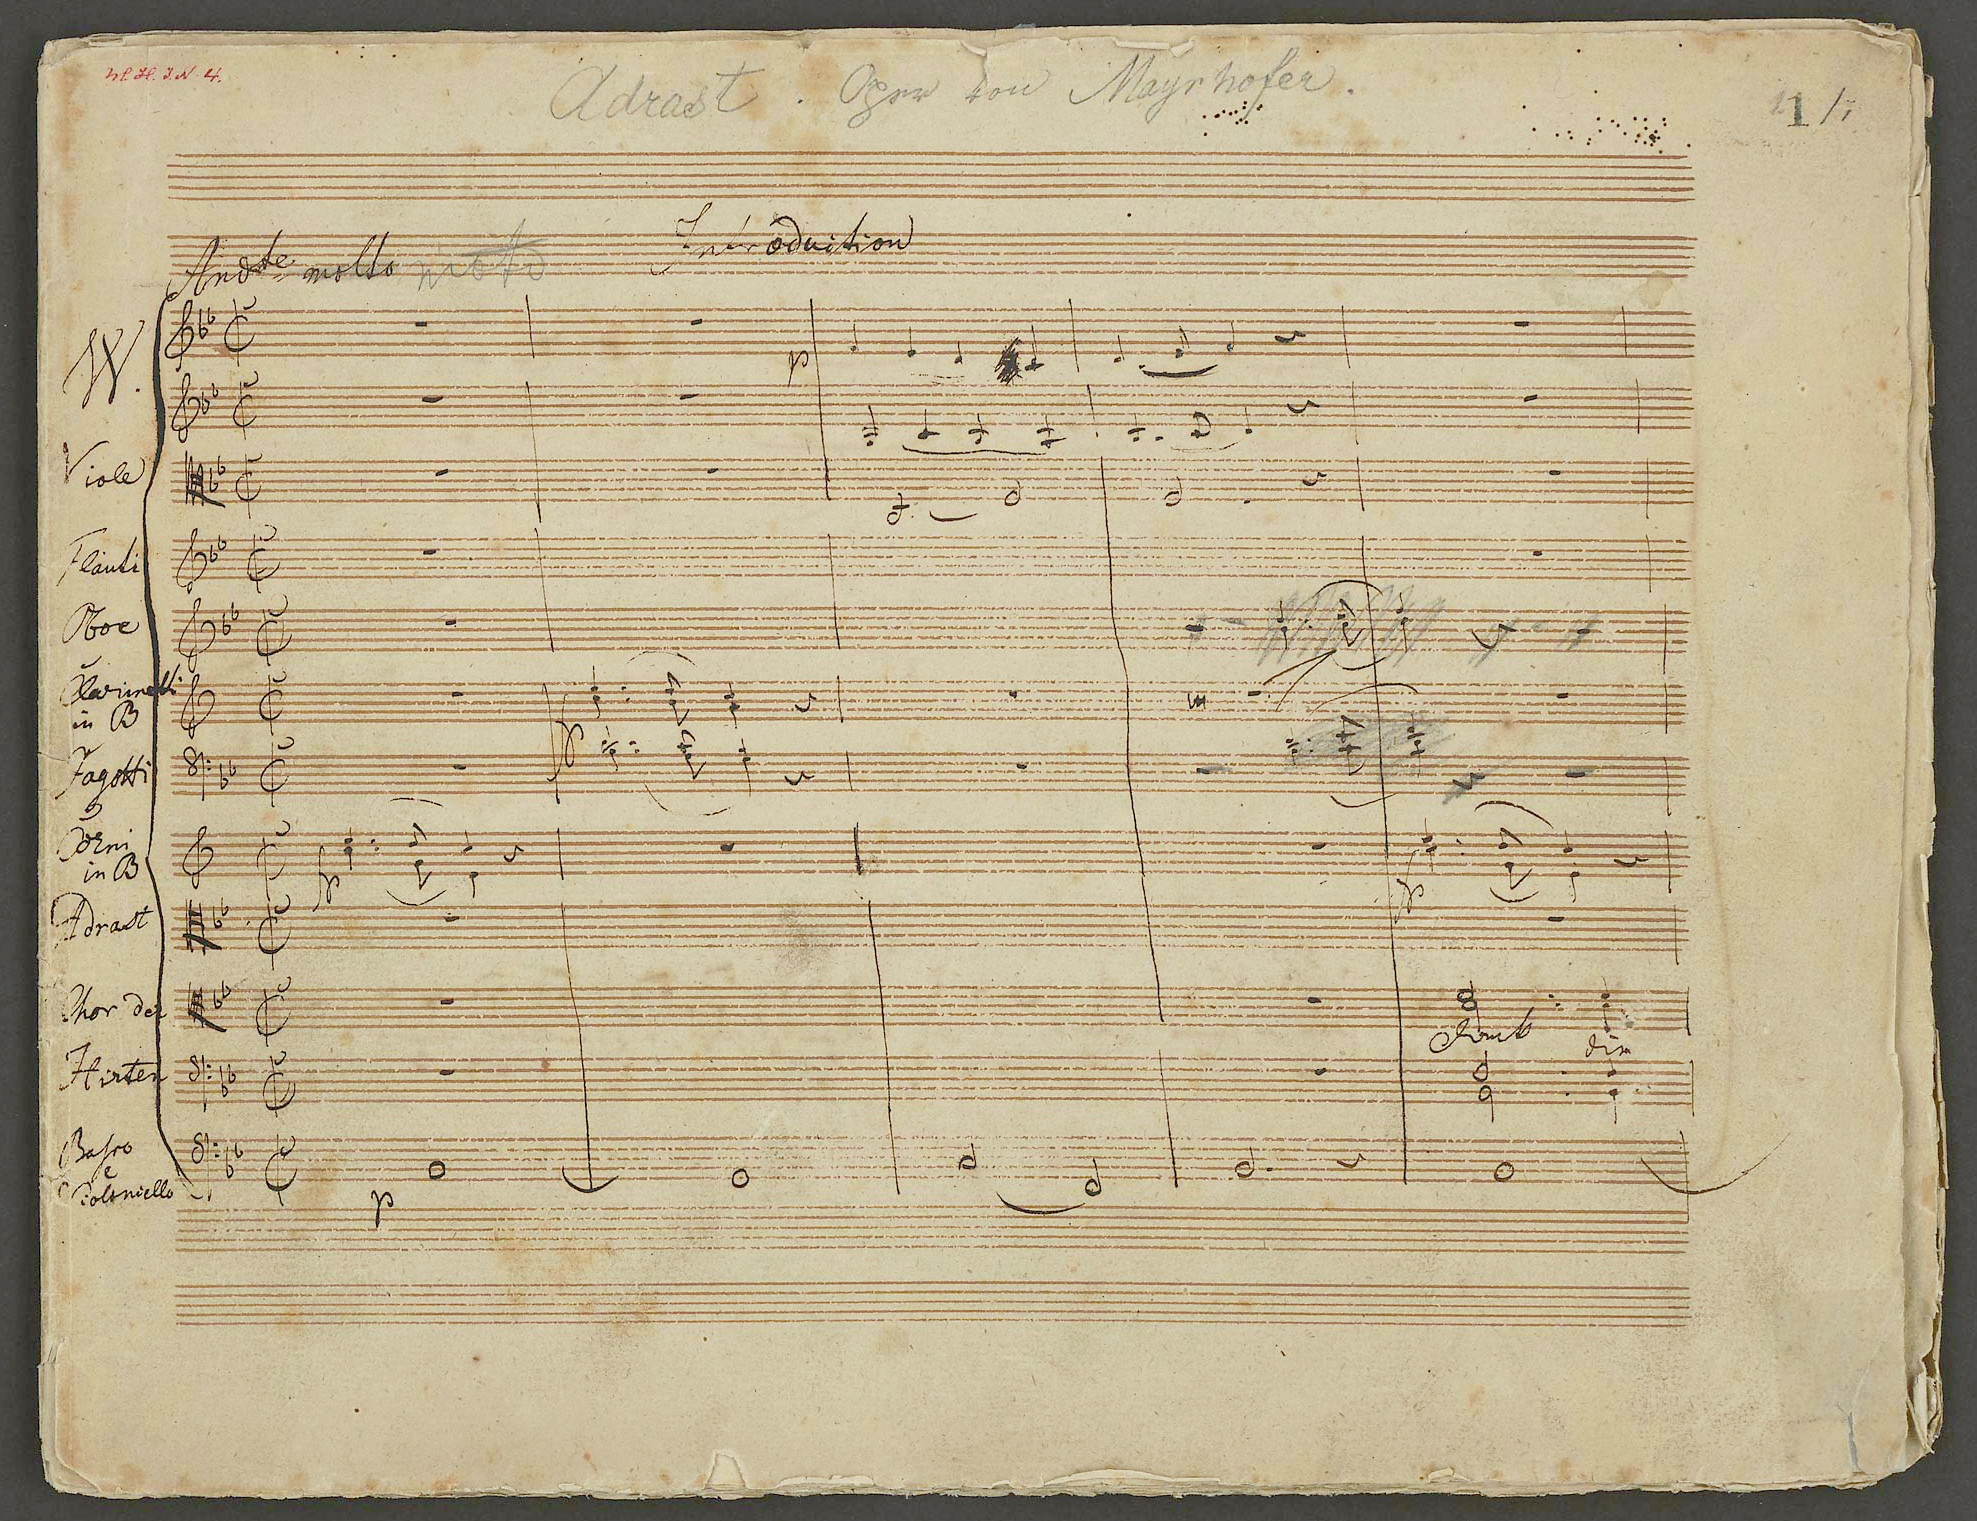 Adrast. Oper von Mayrhofer.
1
Introduction
Andte molto moto
W.
Viole
Flauti
Oboe
Clarinetti
in B
Fagotti
Corni
in B
Adrast
Chor der
Hirten
Dank dir
Basso
e
Violoncello
p
p